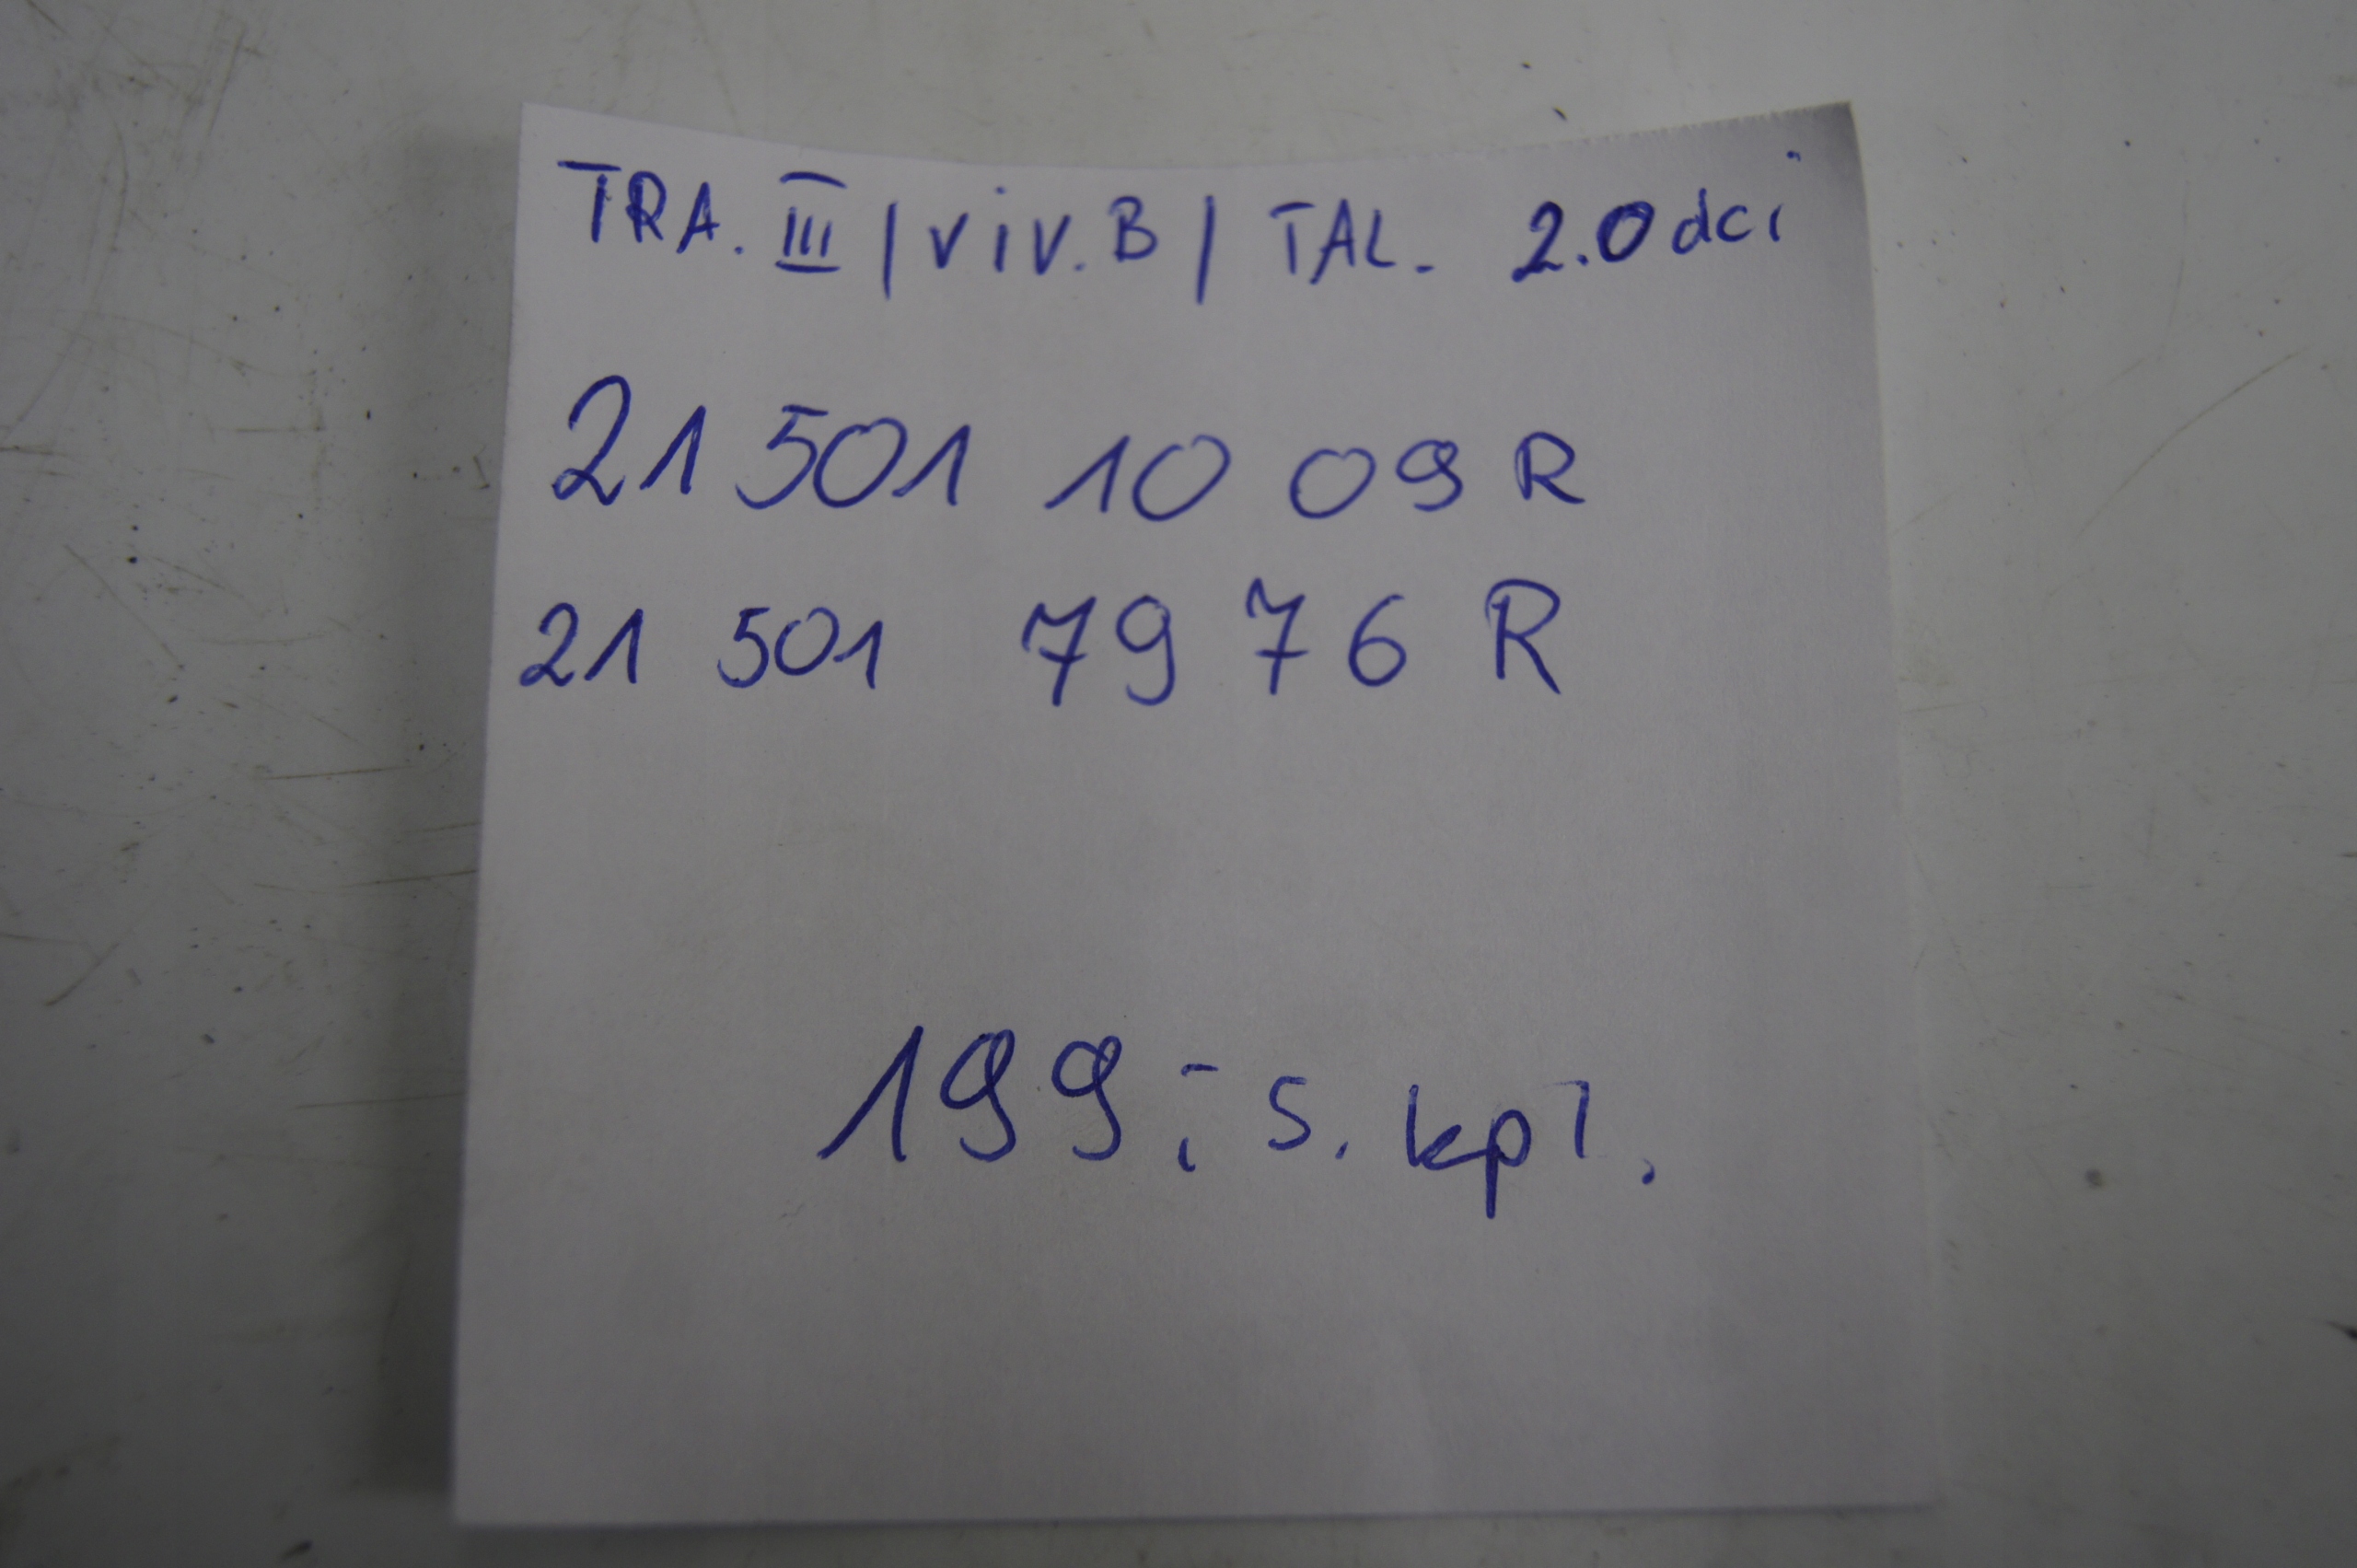 TRA. III / viv. B / TAL. 2.0 dci
21 501 10 09 R
21 501 79 76 R
199,- s. kpl.